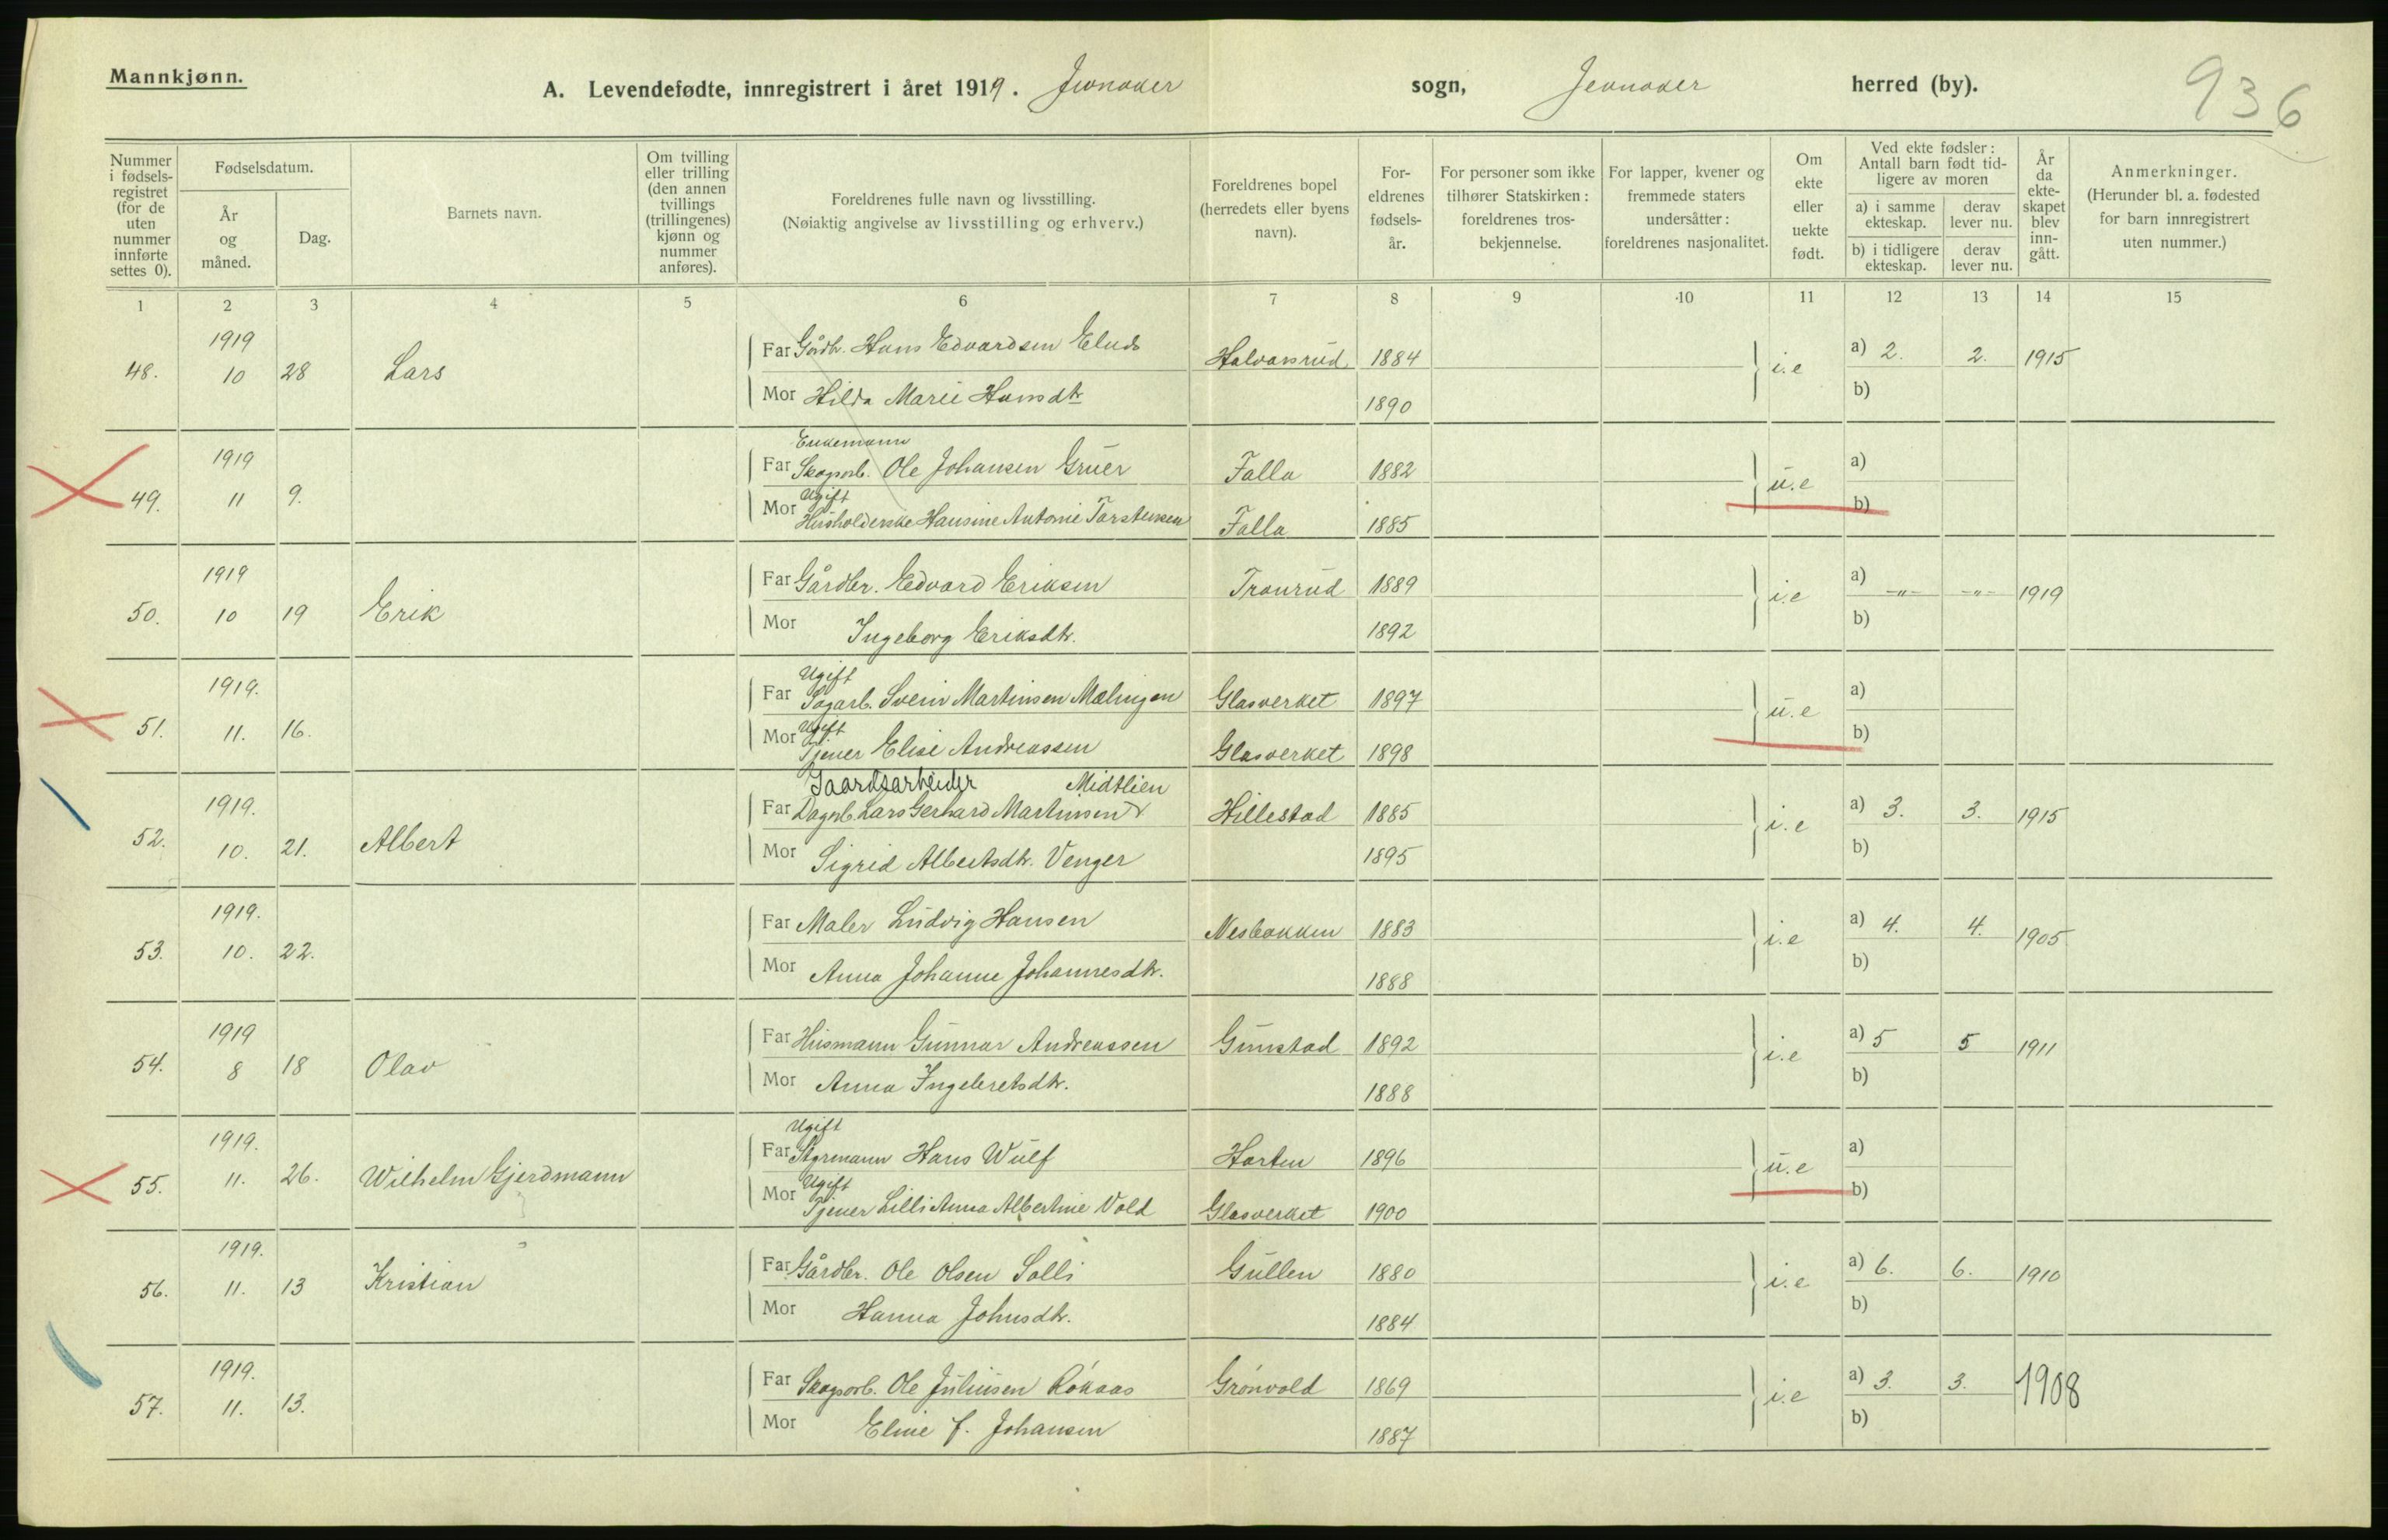 Mannkjønn.
A. Levendefødte, innregistrert i året 1919. Jevnaker sogn, Jevnaker herred (by).
936
Nummer i fødsels-registret (for de uten nummer innførte settes 0).
Fødselsdatum.
År og måned.
Dag.
Barnets navn.
Om tvilling eller trilling (den annen tvillings (trillingenes) kjønn og nummer anføres).
Foreldrenes fulle navn og livsstilling.
(Nøiaktig angivelse av livsstilling og erhverv.)
Foreldrenes bopel (herredets eller byens navn).
For-eldrenes fødsels-år.
For personer som ikke tilhører Statskirken: foreldrenes tros-bekjennelse.
For lapper, kvener og fremmede staters undersåtter: foreldrenes nasjonalitet.
Om ekte eller uekte født.
Ved ekte fødsler: Antall barn født tid-ligere av moren
a) i samme ekteskap.
derav lever nu.
b) i tidligere ekteskap.
derav lever nu.
År da ekte-skapet blev inn-gått.
Anmerkninger.
(Herunder bl. a. fødested for barn innregistrert uten nummer.)
1 2 3 4 5 6 7 8 9 10 11 12 13 14 15
48. 1919 10 28 Lars
Far Gårdb. Hans Edvardsen 1884 i.e a) 2. 2. 1915
Mor Hilda Marie Hansdtr 1890 b)
49. 1919 11 9.
Enkemann
Far Skogsarb. Ole Johansen Gruer Falla 1882 u.e a)
Ugift
Mor Husholderske Hansine Antonie Torstensen Falla 1885 b)
50. 1919 10 19 Erik
Far Gårdbr. Edvard Eriksen Tronrud 1889 i.e a) -"- -"- 1919
Mor Ingeborg Eriksdtr. 1892 b)
51. 1919. 11. 16.
Ugift
Far Sagarb. Svein Martinsen Mælingen Glasverket 1897 u.e a)
Ugift
Mor Tjener Elise Andreassen Glasverket 1898 b)
52. 1919. 10. 21. Albert
Gaardsarbeider Midtlien
Far Dagarb. Lars Gerhard Martinsen Hillestad 1885 i.e a) 3. 3. 1915
Mor Sigrid Albertsdtr. Venger 1895 b)
53. 1919. 10. 22.
Far Maler Ludvig Hansen Nesbakken 1883 i.e a) 4. 4. 1905
Mor Anna Johanne Johannesdtr. 1888 b)
54. 1919 8 18 Olav
Far Husmann Gunnar Andreassen Gunstad 1892 i.e a) 5 5 1911
Mor Anna Ingebretsdtr. 1888 b)
55. 1919. 11. 26. Wilhelm Gjerdmann
Ugift
Far Styrmann Hans Wulf Horten 1896 u.e a)
Ugift
Mor Tjener Lilli Anna Albertine Vold Glasverket 1900 b)
56. 1919. 11. 13 Kristian
Far Gårdbr. Ole Olsen Solli Gullen 1880 i.e a) 6. 6. 1910
Mor Hanna Johnsdtr. 1884 b)
57. 1919. 11. 13.
Far Skogsarb. Ole Juliusen Røkaas Grønvold 1869 i.e a) 3. 3. 1908
Mor Eline J. Johansen 1887 b)